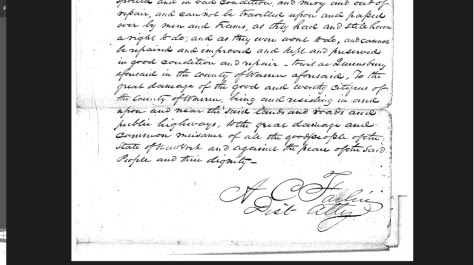 ground and in bad condition, and miry and out of
repair, and cannot be travelled upon and passed
over by men and teams, as they had and still have
a right to do, and as they were wont to do, and cannot
be repaired and improved and kept and preserved
in good condition and repair - to wit at Queensbury
aforesaid in the county of Warren aforesaid, To the
great damage of the good and worthy citizens of
the County of Warren, being and residing in and
upon and near the said lands and roads and
public highways, to the great damage and
common nuisance of all the good people of the
State of New York and against the peace of the said
People and their dignity -
A C
Dist Atty